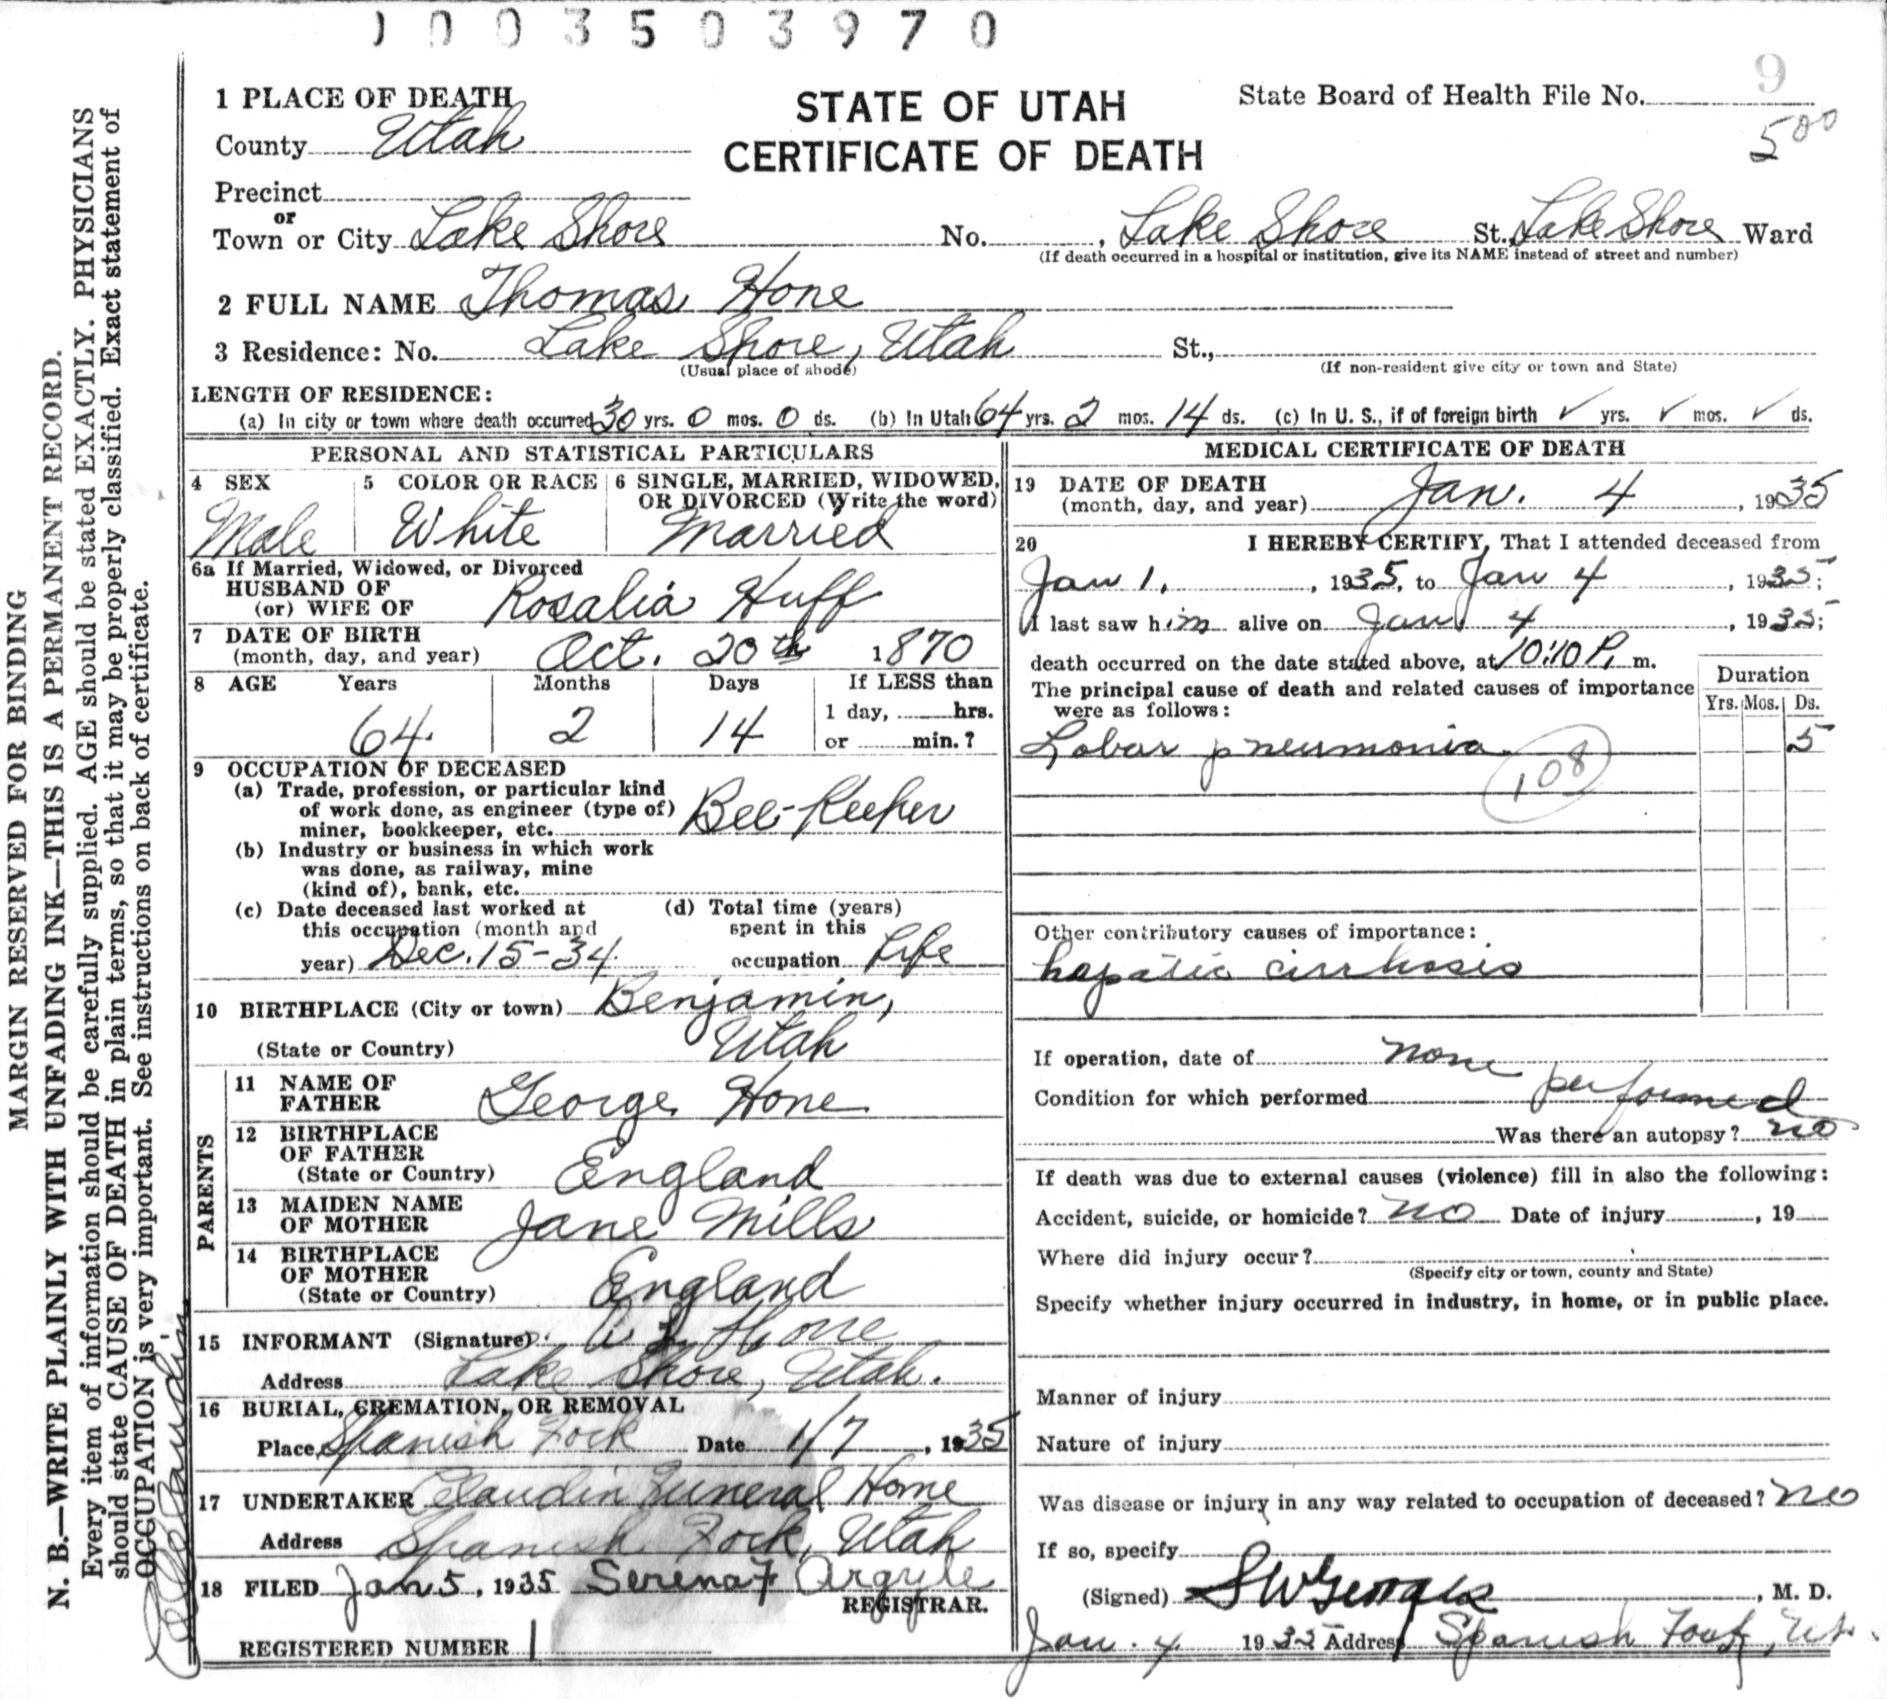 1 0 0 3 5 0 3 9 7 0
9
1 PLACE OF DEATH
STATE OF UTAH
CERTIFICATE OF DEATH
State Board of Health File No.
500
County Utah
Precinct
or
Town or City Lake Shore No. , Lake Shore St., Lake Shore Ward
(If death occurred in a hospital or institution, give its NAME instead of street and number)
2 FULL NAME Thomas Hone
3 Residence: No. Lake Shore, Utah St.,
(Usual place of abode) (If non-resident give city or town and State)
LENGTH OF RESIDENCE:
(a) In city or town where death occurred 30 yrs. 0 mos. 0 ds. (b) In Utah 64 yrs. 2 mos. 14 ds. (c) In U. S., if of foreign birth ✓ yrs. ✓ mos. ✓ ds.
PERSONAL AND STATISTICAL PARTICULARS
4 SEX
Male
5 COLOR OR RACE
White
6 SINGLE, MARRIED, WIDOWED,
OR DIVORCED (Write the word)
Married
6a If Married, Widowed, or Divorced
HUSBAND OF
(or) WIFE OF Rosalia Huff
7 DATE OF BIRTH
(month, day, and year) Oct. 20th 1870
8 AGE Years Months Days If LESS than
1 day, hrs.
64 2 14 or min.?
9 OCCUPATION OF DECEASED
(a) Trade, profession, or particular kind
of work done, as engineer (type of)
miner, bookkeeper, etc. Bee-Keeper
(b) Industry or business in which work
was done, as railway, mine
(kind of), bank, etc.
(c) Date deceased last worked at
this occupation (month and
year) Dec. 15-34
(d) Total time (years)
spent in this
occupation Life
10 BIRTHPLACE (City or town) Benjamin,
(State or Country) Utah
PARENTS
11 NAME OF
FATHER George Hone
12 BIRTHPLACE
OF FATHER
(State or Country) England
13 MAIDEN NAME
OF MOTHER Jane Mills
14 BIRTHPLACE
OF MOTHER
(State or Country) England
15 INFORMANT (Signature) Hone
Address Lake Shore, Utah.
16 BURIAL, CREMATION, OR REMOVAL
Place Spanish Fork Date 1/7, 1935
17 UNDERTAKER Claudin Funeral Home
Address Spanish Fork, Utah
18 FILED Jan 5, 1935 Serena F Argyle
REGISTRAR.
REGISTERED NUMBER 1
MEDICAL CERTIFICATE OF DEATH
19 DATE OF DEATH
(month, day, and year) Jan. 4, 1935
20 I HEREBY CERTIFY, That I attended deceased from
Jan 1, , 1935, to Jan 4, 1935;
I last saw him alive on Jan 4, 1935;
death occurred on the date stated above, at 10:10 P. m.
The principal cause of death and related causes of importance
were as follows:
Duration
Yrs. Mos. Ds.
Lobar pneumonia 5
108
Other contributory causes of importance:
hepatic cirrhosis
If operation, date of none
Condition for which performed performed
Was there an autopsy? no
If death was due to external causes (violence) fill in also the following:
Accident, suicide, or homicide? no Date of injury , 19
Where did injury occur?
(Specify city or town, county and State)
Specify whether injury occurred in industry, in home, or in public place.
Manner of injury
Nature of injury
Was disease or injury in any way related to occupation of deceased? no
If so, specify
(Signed) , M. D.
Jan. 4 1935 Address Spanish Fork, Ut.
MARGIN RESERVED FOR BINDING
N. B.—WRITE PLAINLY WITH UNFADING INK—THIS IS A PERMANENT RECORD.
Every item of information should be carefully supplied. AGE should be stated EXACTLY. PHYSICIANS
should state CAUSE OF DEATH in plain terms, so that it may be properly classified. Exact statement of
OCCUPATION is very important. See instructions on back of certificate.